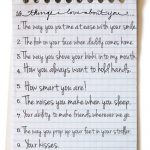 10 things i love about you
1. The way you put me at ease with your smile.
2. The look on your face when daddy comes home
3. The way you shove your blanket into my mouth
4. How you always want to hold hands.
5. How smart you are!
6. The noises you make when you sleep.
7. Your ability to make friends wherever we go
8. The way you prop up your feet in your stroller
9. Your kisses.